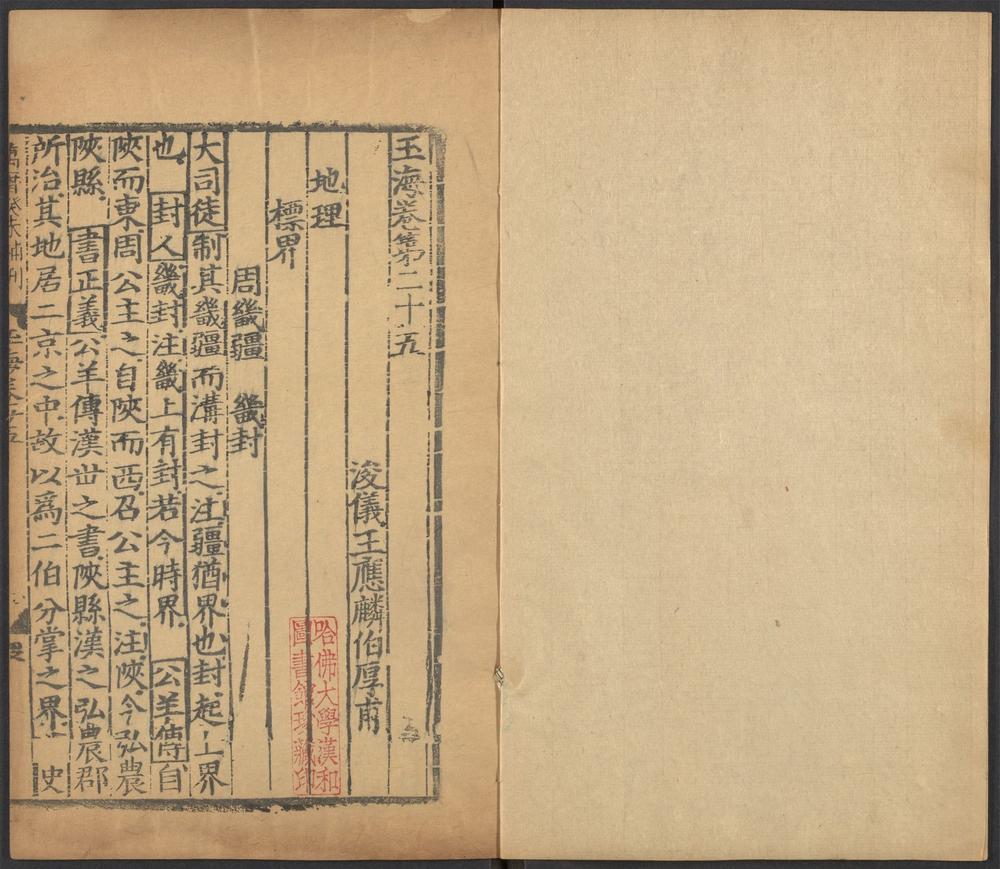 玉海卷第二十五
浚儀王應麟伯厚甫
地理
標界
周畿疆　畿封
大司徒制其畿疆而溝封之注疆猶界也封起土界
也　封人畿封注畿上有封若今時界　公羊傳自
陜而東周公主之自陜而西召公主之注陜今弘農
陜縣　書正義公羊傳漢世之書陜縣漢之弘農郡
所治其地居二京之中故以爲二伯分掌之界　史
玉海卷二十五
哈佛大學漢和
圖書館珍藏印